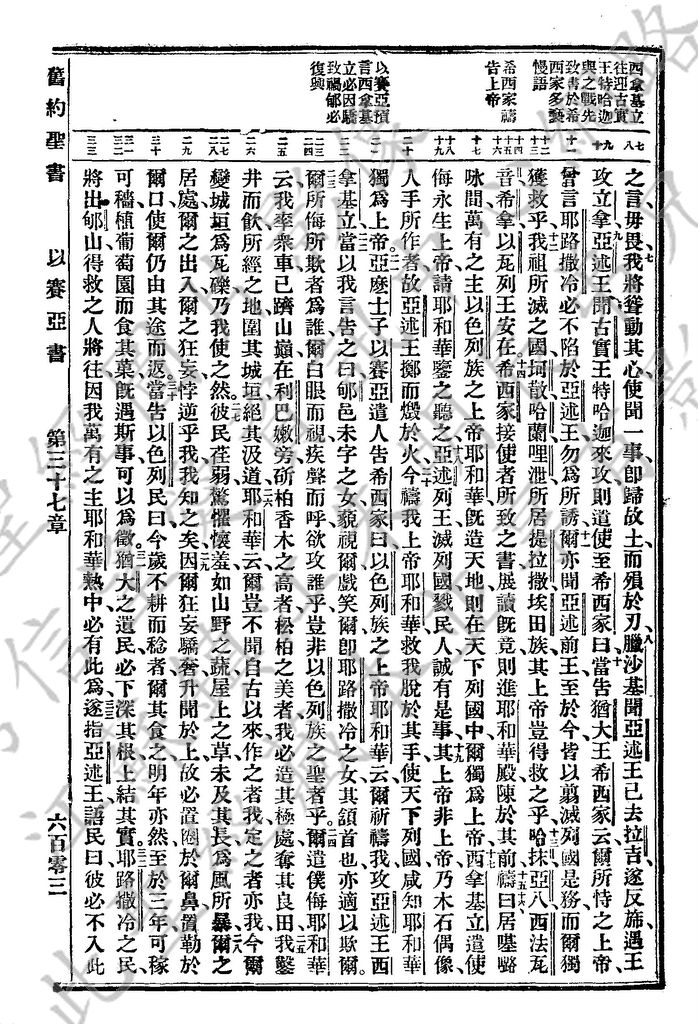 西拿基立
往迎古實
王特哈迦
與之戰先
致書於希
西家多褻
慢語
希西家禱
告上帝
以賽亞預
言西拿基
立必因驕
致禍郇必
復興
之言毋畏、七我將聳動其心、使聞一事、卽歸故土、而殞於刃、八臘沙基聞亞述王已去拉吉、遂反旆、遇王
攻立拿、九亞述王聞古實王特哈迦來攻、則遣使至希西家曰、十當告猶大王希西家云、爾所恃之上帝、
曾言耶路撒冷必不陷於亞述王、勿爲所誘、十一爾亦聞亞述前王、至於今、皆以翦滅列國是務、而爾獨
獲救乎、十二我祖所滅之國、坷散哈蘭哩泄所居提拉撒埃田族、其上帝豈得救之乎、十三哈抹亞八西法瓦
音希拿以瓦列王安在、十四希西家接使者所致之書、展讀旣竟、則進耶和華殿、陳於其前、十五禱曰、十六居𠼻嚕
咏間萬有之主、以色列族之上帝耶和華、旣造天地、則在天下列國中、爾獨爲上帝、十七西拿基立遣使、
侮永生上帝、請耶和華鑒之聽之、十八亞述列王滅列國、戮民人、誠有是事、十九其上帝非上帝、乃木石偶像、
人手所作者、故亞述王擲而燬於火、二十今禱我上帝耶和華、救我脫於其手、使天下列國、咸知耶和華
獨爲上帝、二一亞麼士子以賽亞、遣人告希西家曰、以色列族之上帝耶和華云、爾祈禱我、攻亞述王西
拿基立、二二當以我言告之曰、郇邑未字之女、藐視爾、戲笑爾、卽耶路撒冷之女、其頷首也、亦適以欺爾、
二三爾所侮所欺者爲誰、爾白眼而視、疾聲而呼、欲攻誰乎、豈非以色列族之聖者乎、二四爾遣僕、侮耶和華
云、我率衆車、已躋山巔、在利巴嫩旁、斫柏香木之高者、松柏之美者、我必造其極處、奪其良田、二五我鑿
井而飲、所經之地、圍其城垣、絕其汲道、二六耶和華云、爾豈不聞自古以來、作之者我、定之者亦我、今爾
變城垣爲瓦礫、乃我使之然、二七彼民荏弱、驚懼懷羞、如山野之蔬、屋上之草、未及其長、爲風所暴、二八爾之
居處、爾之出入、爾之狂妄悖逆乎我、我知之矣、二九因爾狂妄驕奢、升聞於上、故必置圈於爾鼻、置勒於
爾口、使爾仍由其途而返、三十當告以色列民曰、今歲不耕而稔者、爾其食之、明年亦然、至於三年、可稼
可穡、植葡萄園而食其菓、旣遇斯事、可以爲徵、三一猶大之遺民、必下深其根、上結其實、三二耶路撒冷之民、
將出郇山、得救之人將往、因我萬有之主耶和華、熱中必有此爲、三三遂指亞述王、語民曰、彼必不入此
舊約聖書 以賽亞書 第三十七章 六百零三